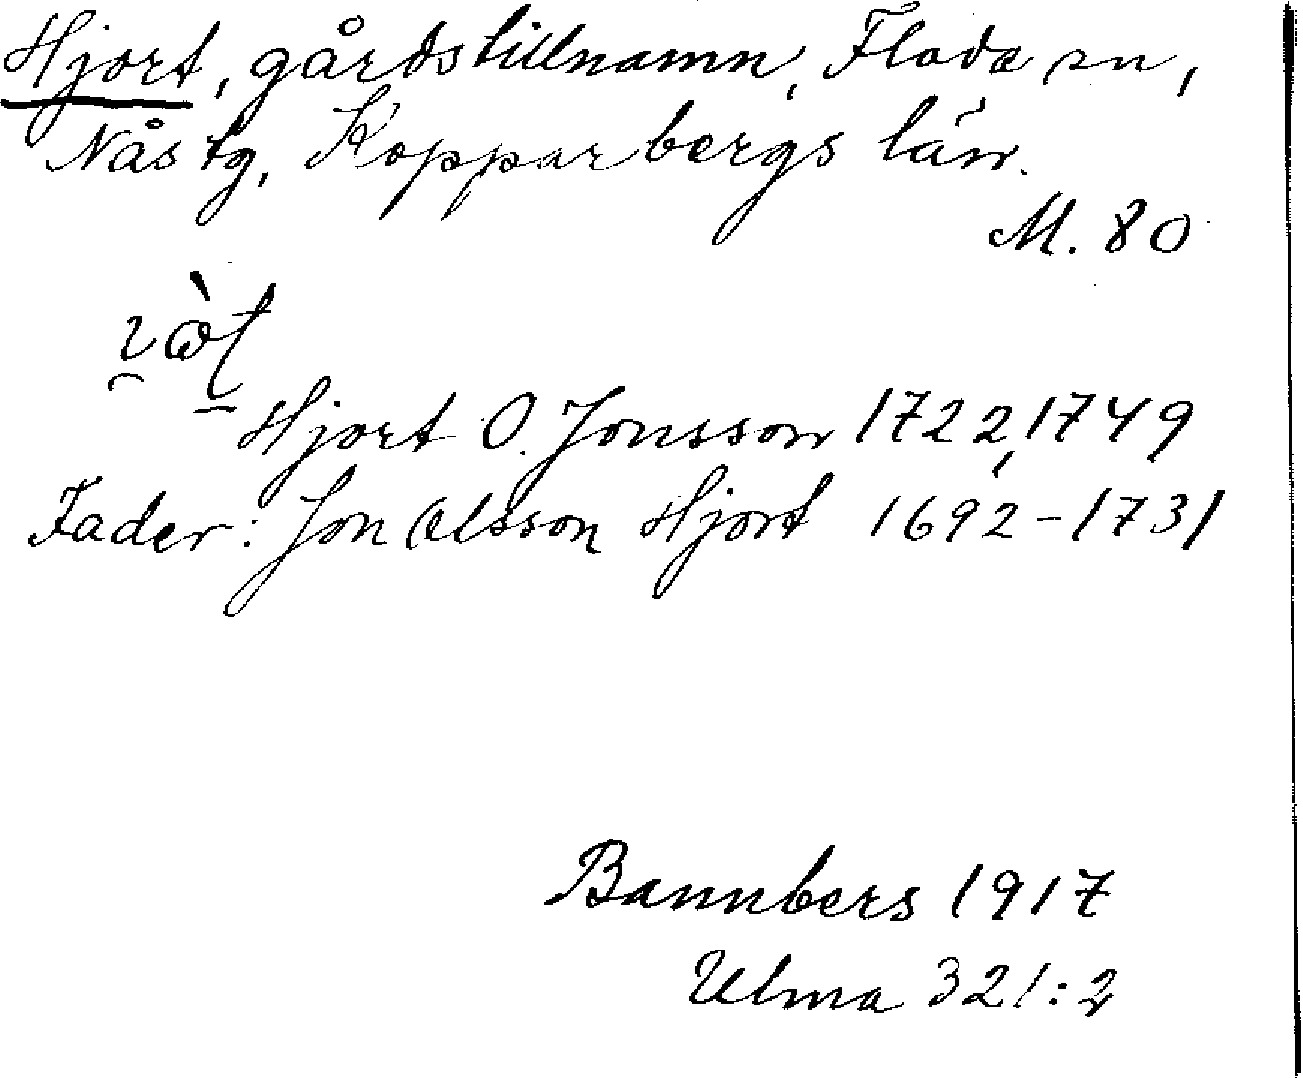 Hjort, gårdstillnamn, Floda sn,
Nås tg, Kopparbergs län.
M. 80
Hjort O. Jonsson 1722, 1749
Fader: Jon Olsson Hjort 1692-1731
Bannbers 1917
Ulma 321:2